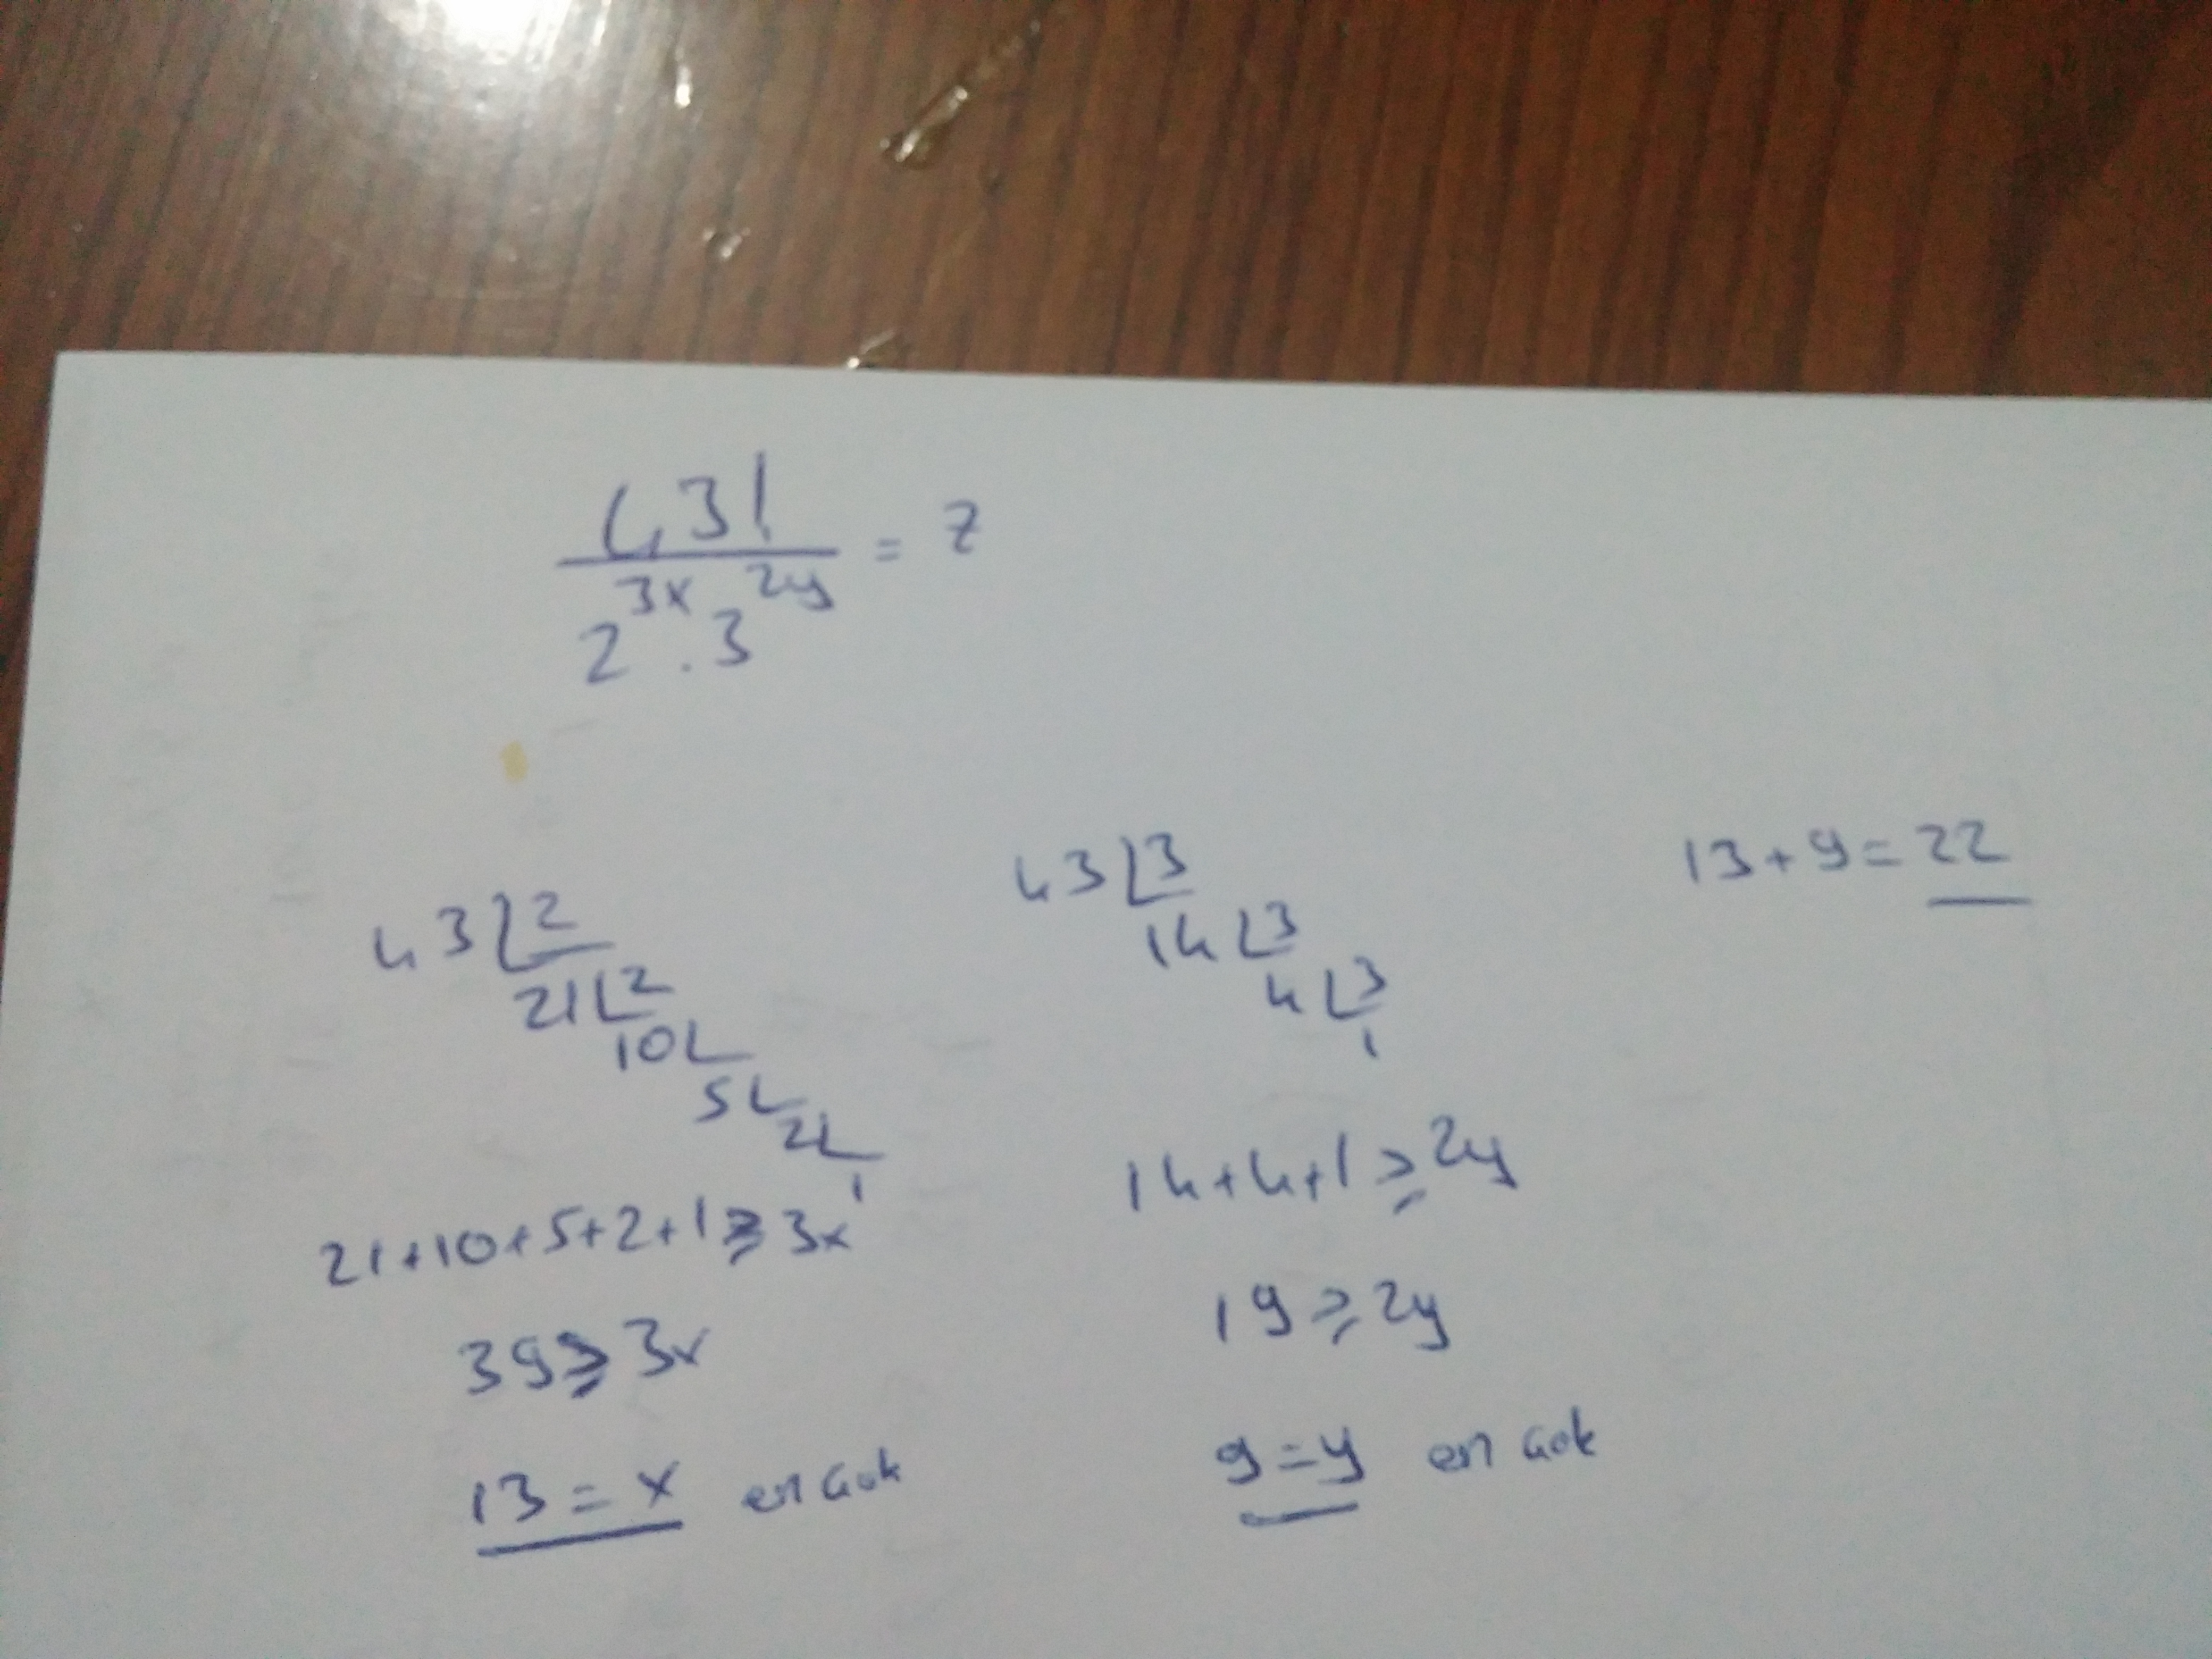 43!
2^3x . 3^2y = z
43 | 2
21 | 2
10 |
5 |
2 |
1
21+10+5+2+1 ≥ 3x
39 ≥ 3x
13 = x en çok
43 | 3
14 | 3
4 | 3
1
14+4+1 ≥ 2y
19 ≥ 2y
9 = y en çok
13+9 = 22